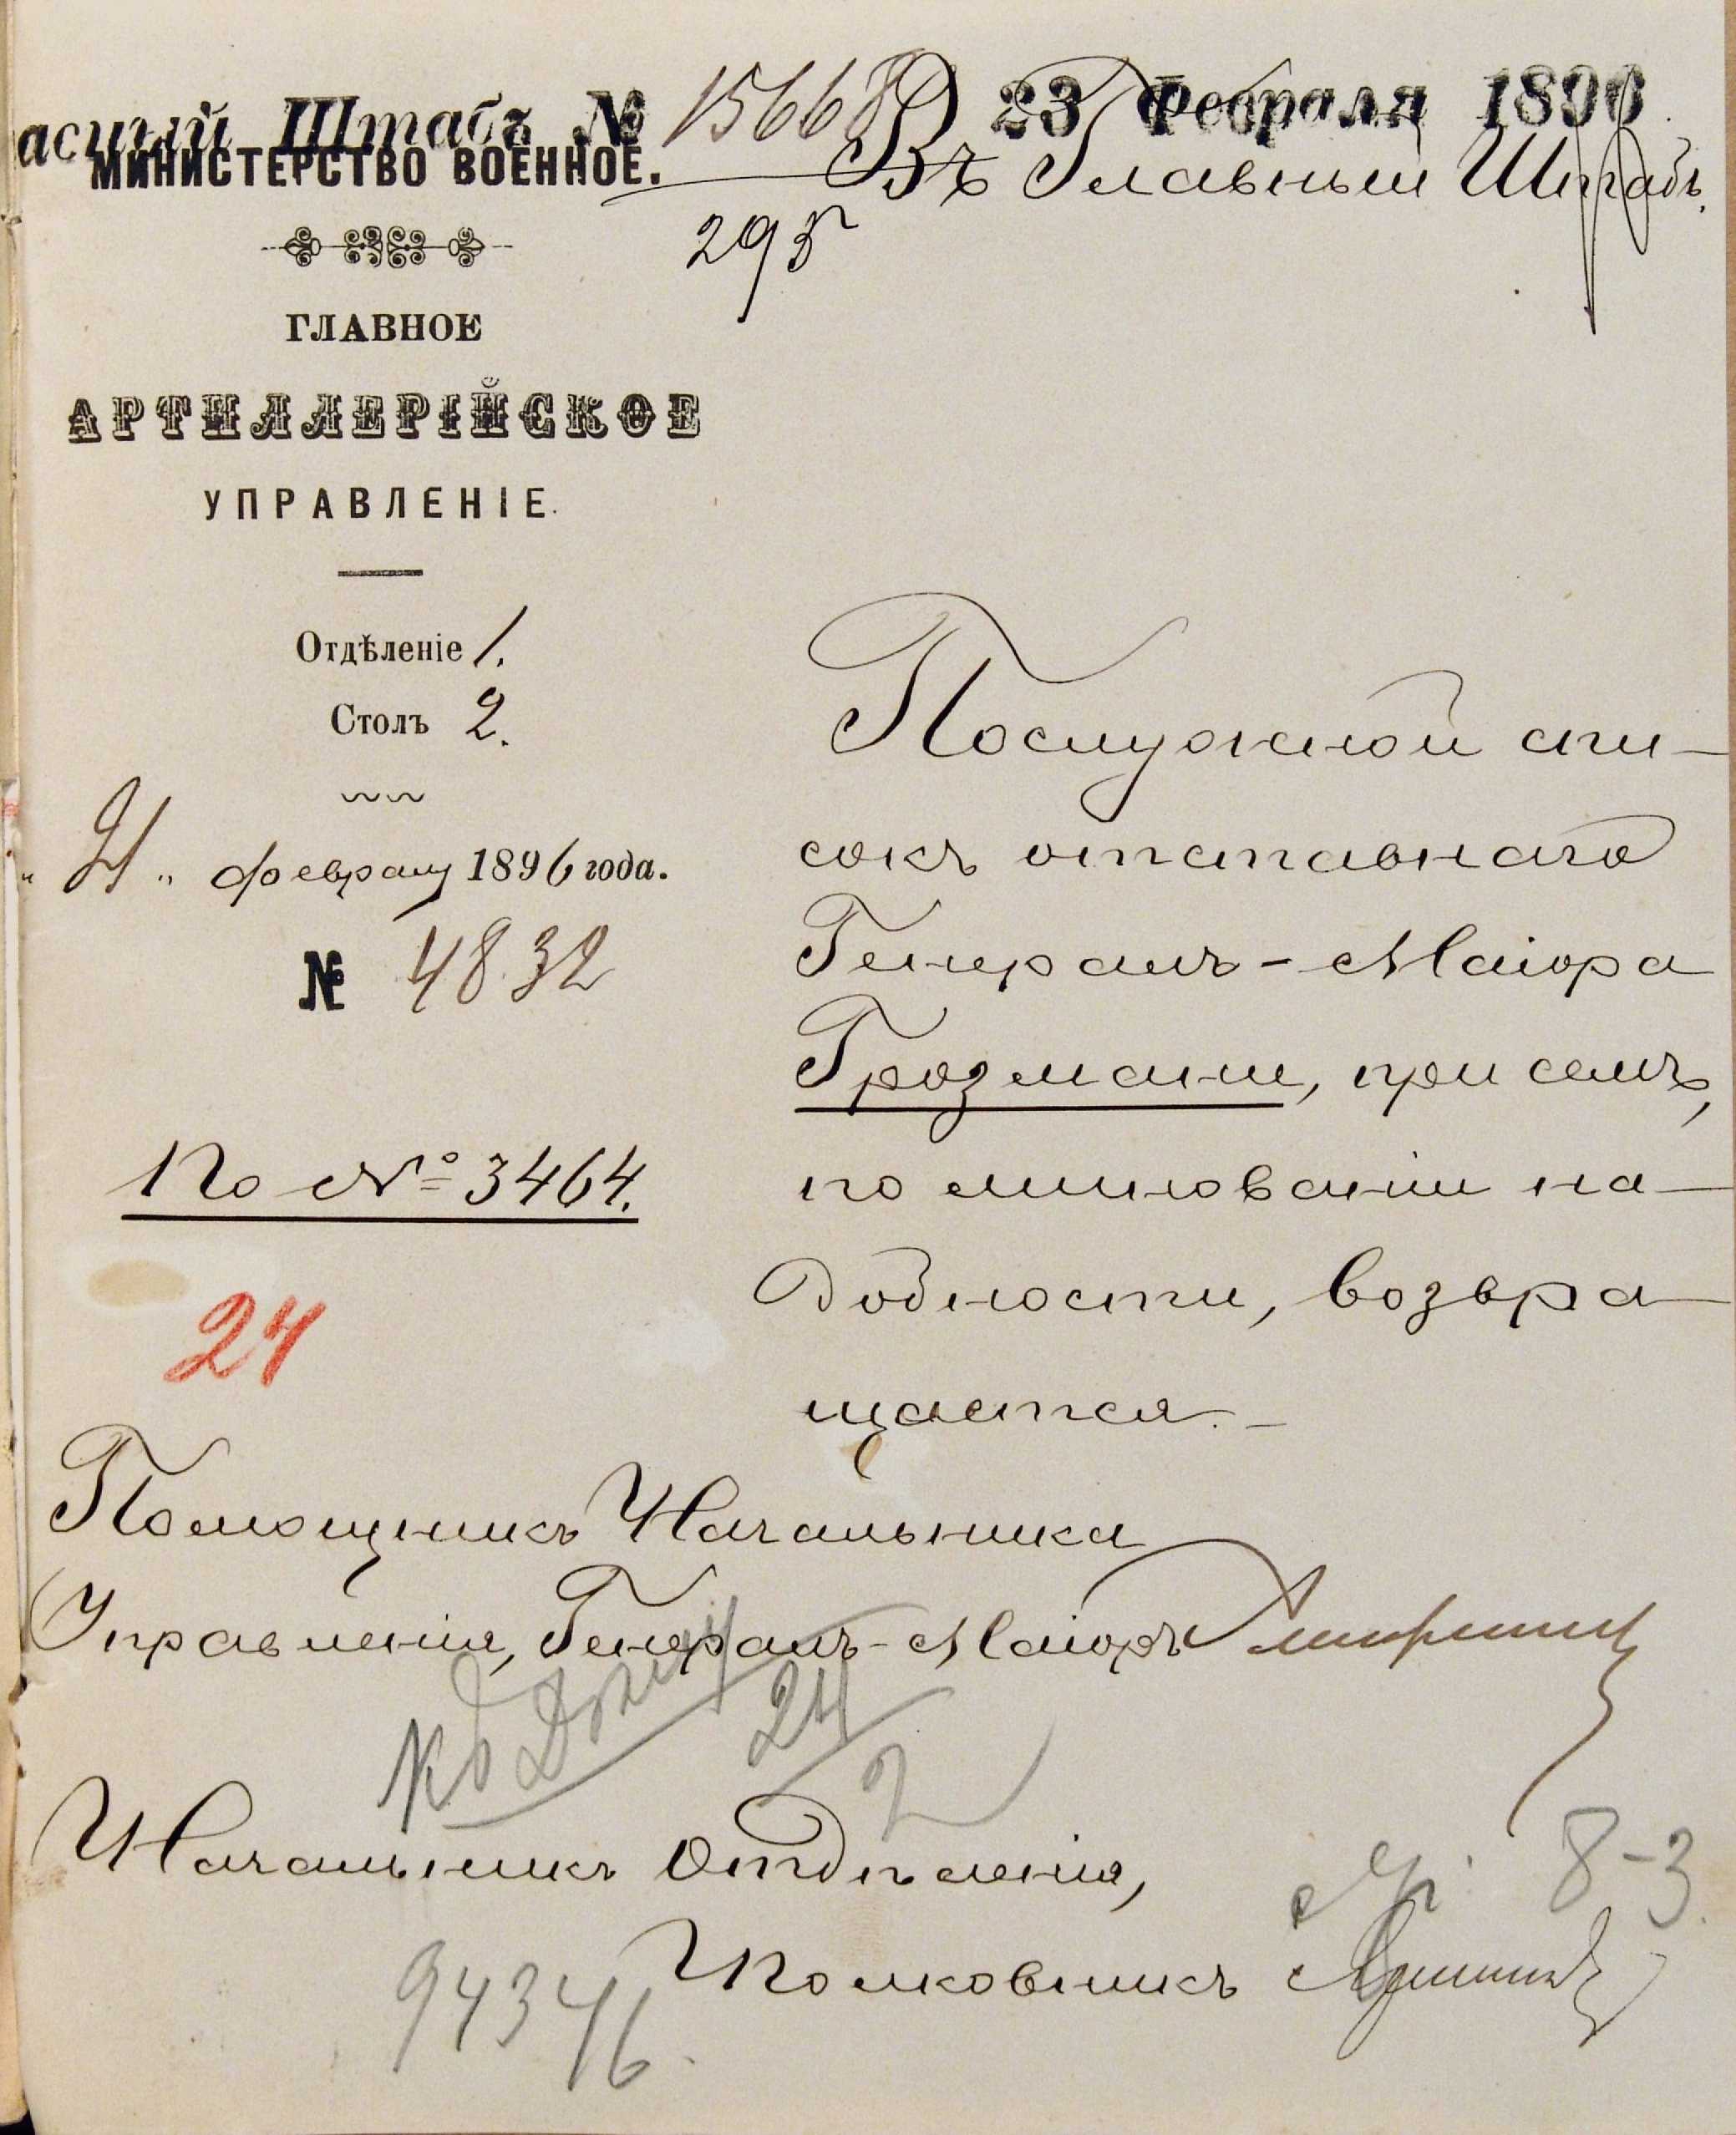 асный Штабъ № 15668 23 Февраля 1896
МИНИСТЕРСТВО ВОЕННОЕ.
295
Въ Главный Штабъ.
ГЛАВНОЕ
АРТИЛЛЕРІЙСКОЕ
УПРАВЛЕНІЕ.
Отдѣленіе 1.
Столъ 2.
" 21 " февраля 1896 года.
№ 4832
По № 3464.
24
Послужной спи-
сокъ отставнаго
Генералъ-Маіора
Грозмани, при семъ,
по минованіи на-
добности, возвра-
щается.-
Помощникъ Начальника
Управленія, Генералъ-Маіоръ
къ дѣлу
24
2
Начальникъ Отдѣленія,
8-3.
Полковникъ
94346.